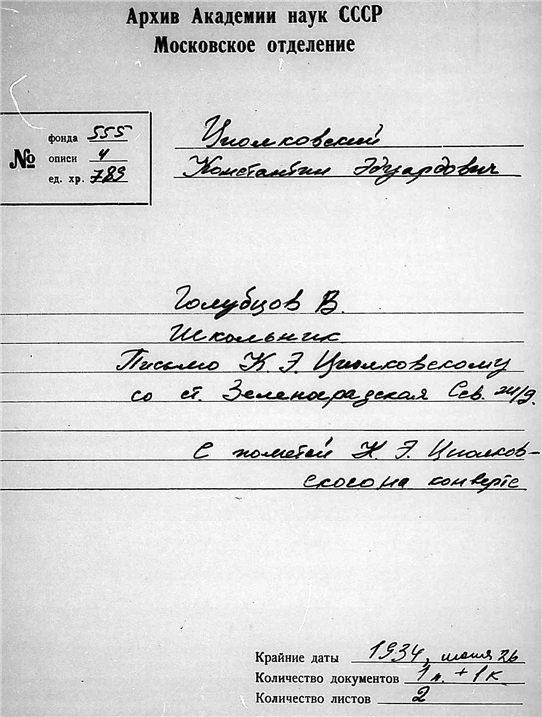 Архив Академии наук СССР
Московское отделение
№
фонда 555
описи 4
ед. хр. 789
Циолковский
Константин Эдуардович
Голубцов В.
Школьник
Письмо К. Э. Циолковскому
со ст. Зеленоградская Сев. ж/д.
С пометой К. Э. Циолков-
ского на конверте
Крайние даты 1934, июня 26
Количество документов 1 п. + 1 к
Количество листов 2